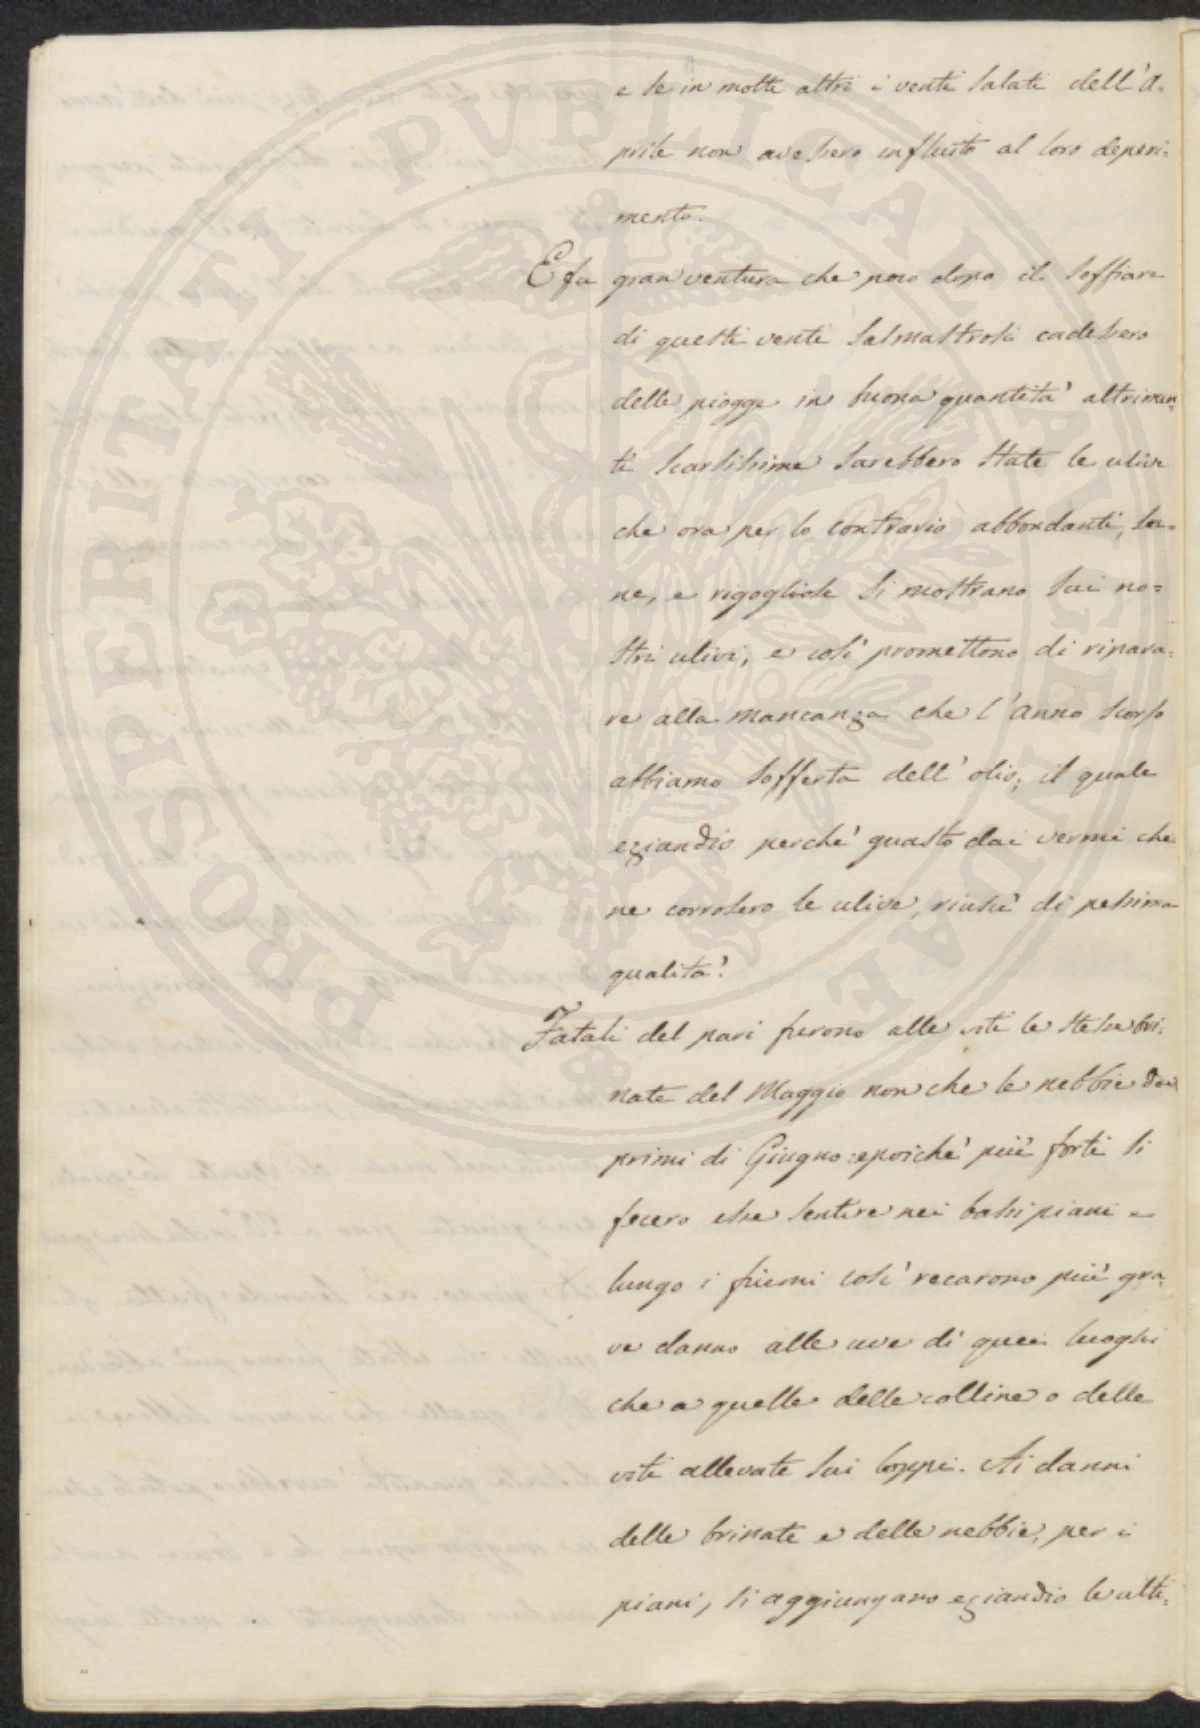 e se in molti altri i venti salati dell'A-
prile non avessero influito al loro deperi-
mento.
E fu gran ventura che poco dopo il soffiare
di questi venti salmastrosi cadessero
delle piogge in buona quantità altrimen
ti scarsissime sarebbero state le ulive
che ora per lo contrario abbondanti, sa-
ne, e rigogliose si mostrano sui no=
stri ulivi, e così promettono di ripara-
re alla mancanza che l'anno scorso
abbiamo sofferta dell'olio, il quale
eziandio perchè guasto dai vermi che
ne corrosero le ulive, riuscì di pessima
qualità.
Fatali del pari furono alle viti le stesse bri-
nate del Maggio non che le nebbie dei
primi di Giugno: epoichè più forti si
fecero esse sentire nei bassi piani e
lungo i fiumi così recarono più gra-
ve danno alle uve di quei luoghi
che a quelle delle colline o delle
viti allevate sui loppi. Ai danni
delle brinate e delle nebbie, per i
piani, si aggiungano eziandio le ulti-
PROSPERITATI PVBLICAE AVGENDAE